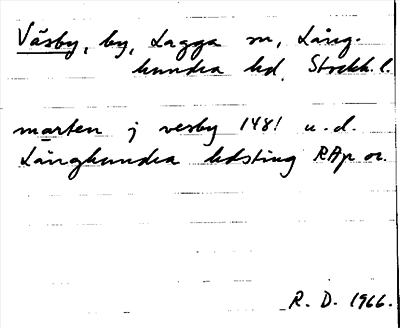 Väsby, by, Lagga sn, Lång-
hundra hd, Stockh. l.
marten j vesby 1481 u. d.
Långhundra hdsting RAp or.
R. D. 1966.